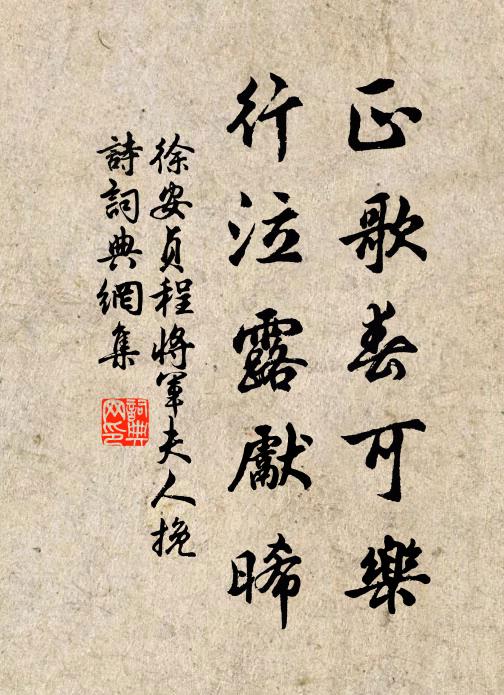 正歌春可樂
行泣露獻晞
徐安貞程將軍夫人挽
詩詞典網集
詞典网印